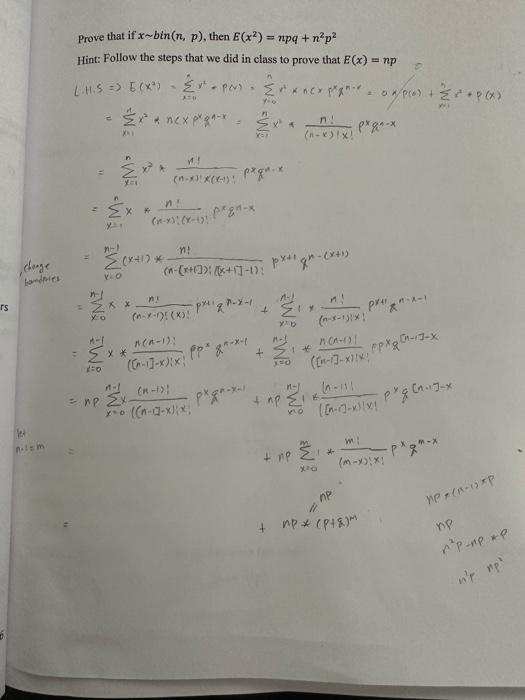 Prove that if x~bin(n, p), then E(x²) = npq + n²p²
Hint: Follow the steps that we did in class to prove that E(x) = np
L.H.S => E(x²) = Σ_{x=0}^{n} x² * P(x) = Σ_{x=0}^{n} x² * nCx p^x q^{n-x} = 0 * P(0) + Σ_{x=1}^{n} x² * P(x)
= Σ_{x=1}^{n} x² * nCx p^x q^{n-x} = Σ_{x=1}^{n} x² * n!/((n-x)! x!) p^x q^{n-x}
= Σ_{x=1}^{n} x² * n!/((n-x)! x(x-1)!) p^x q^{n-x}
= Σ_{x=1}^{n} x * n!/((n-x)! (x-1)!) p^x q^{n-x}
change boundries
= Σ_{x=0}^{n-1} (x+1) * n!/((n-[x+1])! ([x+1]-1)! p^{x+1} q^{n-(x+1)}
rs
= Σ_{x=0}^{n-1} x * n!/((n-x-1)! (x)! p^{x+1} q^{n-x-1} + Σ_{x=0}^{n-1} 1 * n!/((n-x-1)! x! p^{x+1} q^{n-x-1}
= Σ_{x=0}^{n-1} x * n(n-1)!/(([n-1]-x)! x! pp^x q^{n-x-1} + Σ_{x=0}^{n-1} 1 * n(n-1)!/(([n-1]-x)! x! pp^x q^{[n-1]-x}
= np Σ_{x=0}^{n-1} x (n-1)!/(([n-1]-x)! x! p^x q^{n-x-1} + np Σ_{x=0}^{n-1} 1 * (n-1)!/(([n-1]-x)! x! p^x q^{[n-1]-x}
let
n-1=m
= + np Σ_{x=0}^{m} 1 * m!/((m-x)! x! p^x q^{m-x}
np
||
= + np * (p+q)^m
np * (n-1) * p
np
n²p - np * p
n²p np²
6